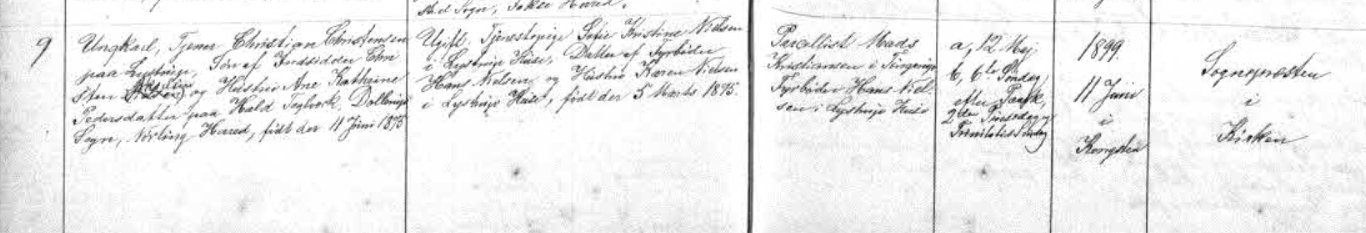 Sted Sogn, Fakse Herred.
9
Ungkarl, Tjener Christian Christensen
paa Lystrup, Søn af Indsidder Chri
sten og Hustru Ane Kathrine
Pedersdatter paa Hald Teglværk, Dollerup
Sogn, Nørlyng Herred, født der 11 Juni 1875
Ugift, Tjenestepige Sofie Kristine Nielsen
i Lystrup Huse, Datter af Fyrbøder
Hans Nielsen og Hustru Karen Nielsen
i Lystrup Huse, født der 5 Marts 1875.
Parcellist Mads
Kristiansen i
Fyrbøder Hans Niel-
sen i Lystrup Huse
a, 12 Maj
b, 6te Søndag
efter Paask,
2den Pinsedag og
Trinitatis Søndag
1899.
11 Juni
i
Kongsted
Sognepræsten
i
Kirken